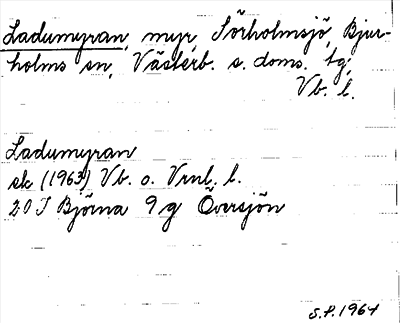 Ladumyran, myr, Sörholmsjö, Bjur-
holms sn, Västerb. s. doms. tg,
Vb. l.
Ladumyran
ek (1963) Vb. o. Vrnl. l.
20 I Björna 9 g Översjön
S.P. 1964